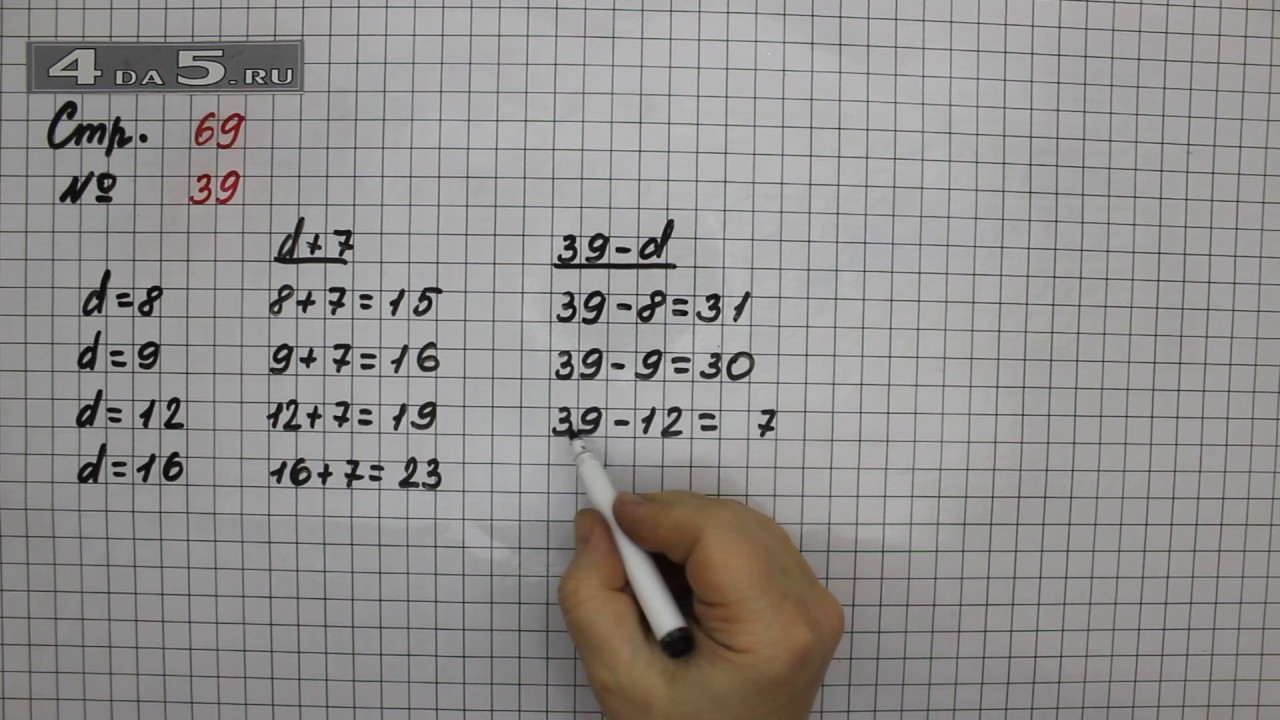 4DA5.RU
Стр. 69
№ 39
d+7 39-d
d=8 8+7=15 39-8=31
d=9 9+7=16 39-9=30
d=12 12+7=19 39-12= 7
d=16 16+7=23